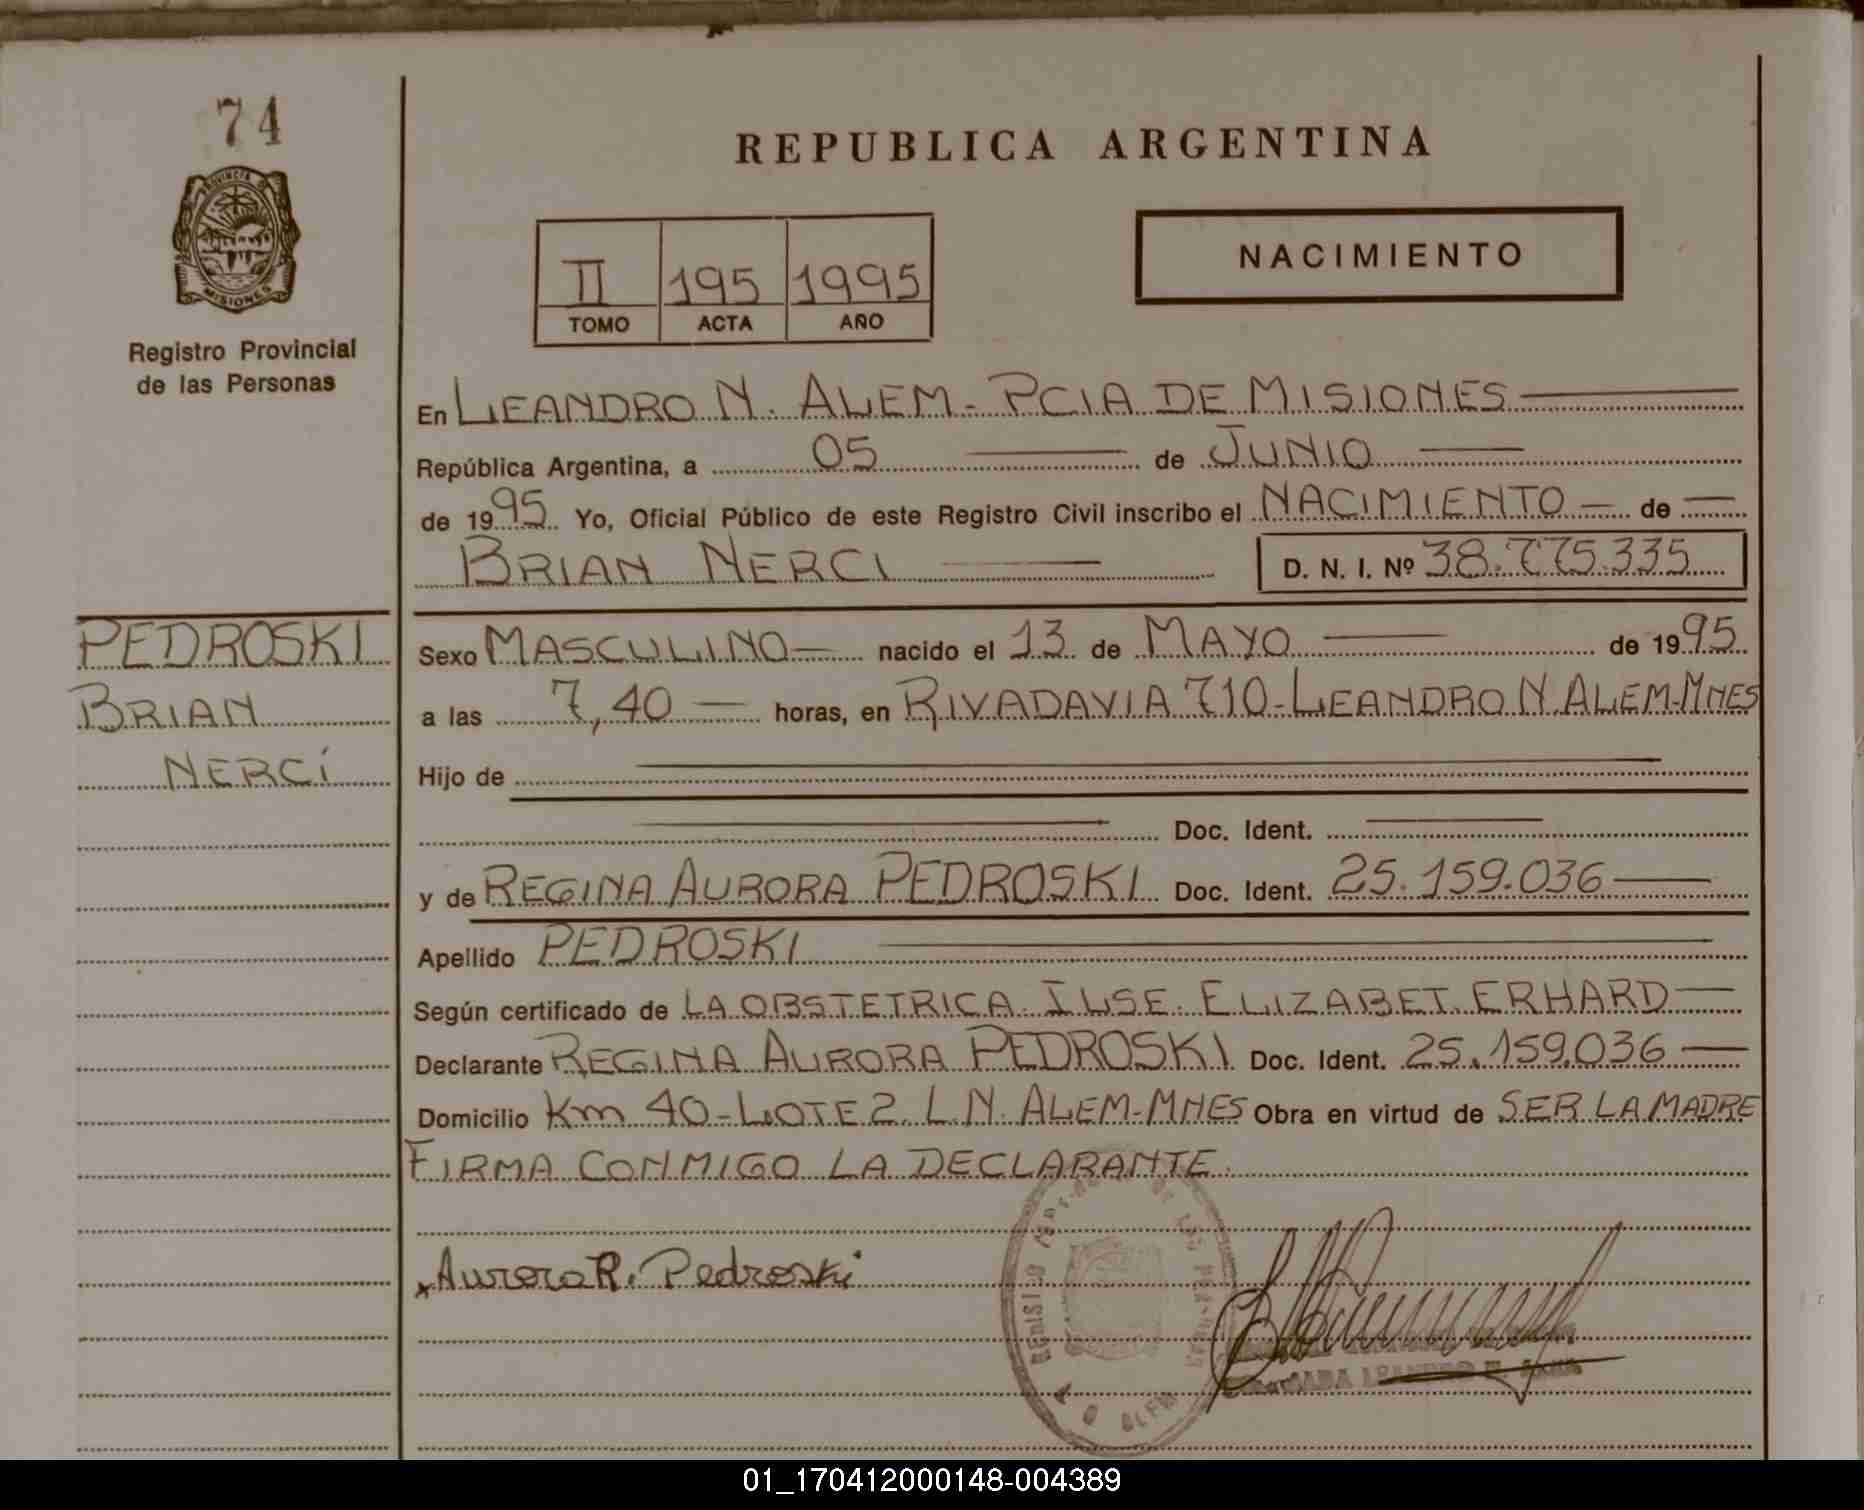 74
PROVINCIA DE
MISIONES
Registro Provincial
de las Personas
REPUBLICA ARGENTINA
NACIMIENTO
II 195 1995
TOMO ACTA AÑO
En LEANDRO N. ALEM - PCIA DE MISIONES
República Argentina, a 05 de JUNIO
de 1995 Yo, Oficial Público de este Registro Civil inscribo el NACIMIENTO de
BRIAN NERCI D. N. I. Nº 38.775.335
PEDROSKI
BRIAN
NERCí
Sexo MASCULINO nacido el 13 de MAYO de 1995
a las 7,40 horas, en RIVADAVIA 710-LEANDRO N ALEM-MNES
Hijo de
Doc. Ident.
y de REGINA AURORA PEDROSKI Doc. Ident. 25.159.036
Apellido PEDROSKI
Según certificado de LA OBSTETRICA ILSE ELIZABET ERHARD
Declarante REGINA AURORA PEDROSKI Doc. Ident. 25.159.036
Domicilio Km 40-LOTE 2. L.N. ALEM-MNES Obra en virtud de SER LA MADRE
FIRMA CONMIGO LA DECLARANTE.
x Aurora R. Pedroski
01_170412000148-004389